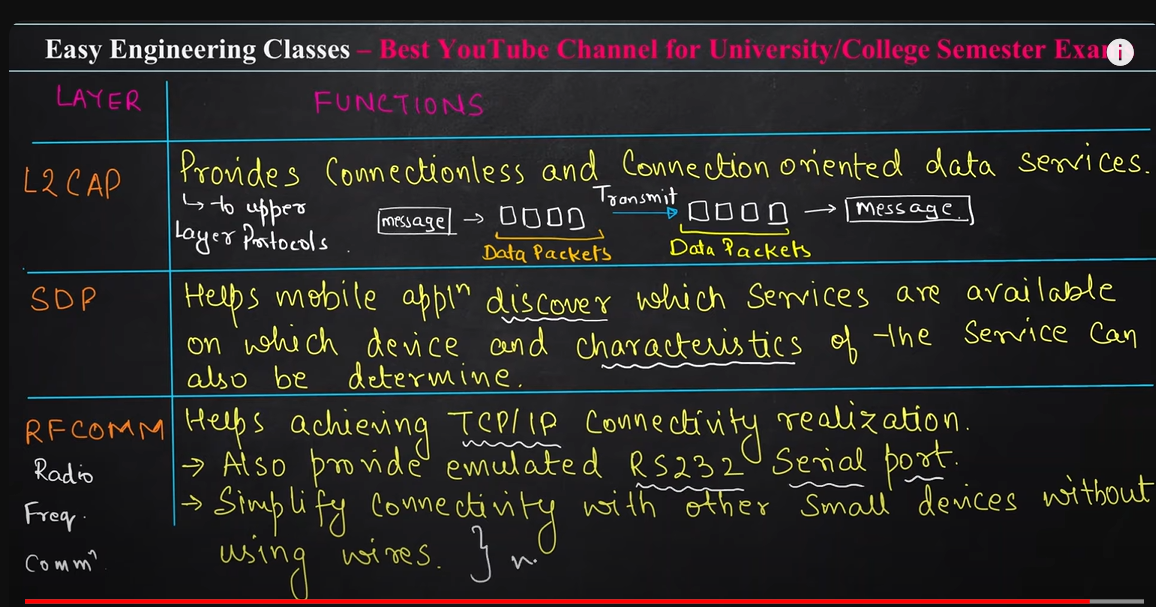 Easy Engineering Classes – Best YouTube Channel for University/College Semester Exa
i
LAYER
FUNCTIONS
L2CAP
Provides Connectionless and Connection oriented data services.
↳ to upper
Layer Protocols
message → Transmit → message
Data Packets
Data Packets
SDP
Helps mobile appln discover which services are available
on which device and characteristics of the service can
also be determine.
RFCOMM
Helps achieving TCP/IP Connectivity realization.
Radio
→ Also provide emulated RS232 Serial port.
Freq.
→ Simplify connectivity with other small devices without
Commn
using wires. }